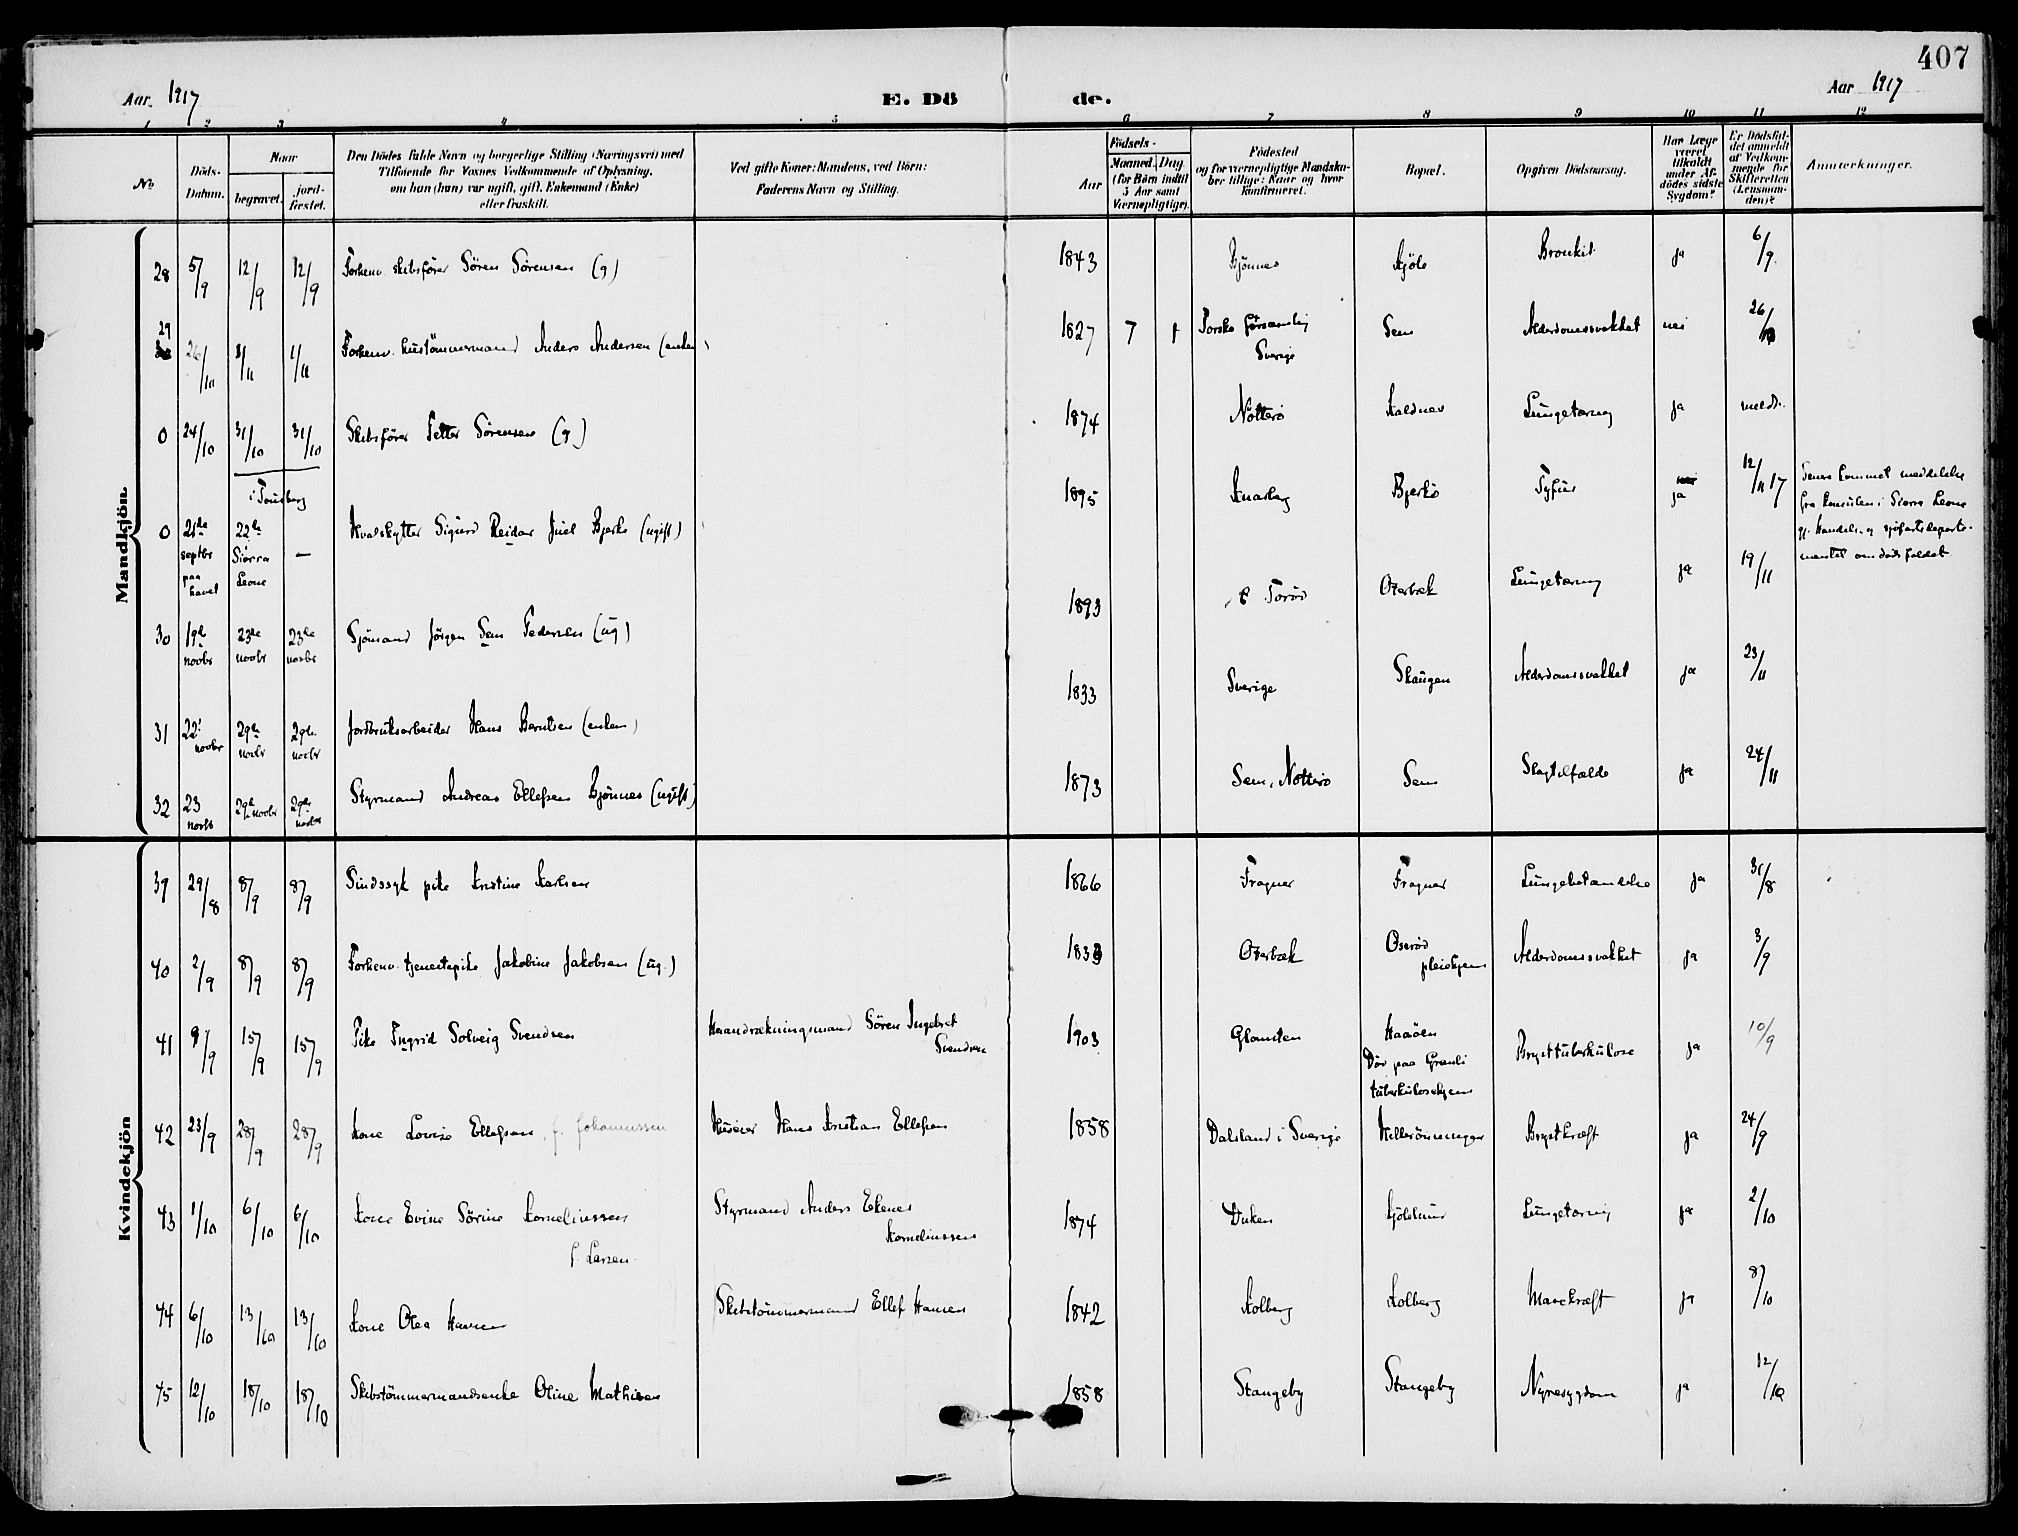 407
Aar 1917 E. Dö de. Aar 1917
1 2 3 4 5 6 7 8 9 10 11 12
No
Döds-Datum.
Naar begravet. jordfæstet.
Den Dödes fulde Navn og borgerlige Stilling (Næringsvei) med Tilföiende for Voxnes Vedkommende af Oplysning, om han (hun) var ugift, gift, Enkemand (Enke) eller fraskilt.
Ved gifte Koner: Mandens, ved Börn: Faderens Navn og Stilling.
Aar
Födsels- Maaned. Dag. (for Börn indtil 5 Aar samt Værnepligtige).
Födested og for værnepligtige Mandskaber tillige: Naar og hvor Konfirmeret.
Bopæl.
Opgiven Dödsaarsag.
Har Læge været tilkaldt under Afdödes sidste Sygdom?
Er Dödsfaldet anmeldt af Vedkommende for Skifteretten (Lensmanden)?
Anmerkninger.
Mandkjön.
28 5/9 12/9 12/9 Forhenv. skibsfører Sören Sörensen (g) 1843 Bjönnes Kjöle Bronkit ja 6/9
29 26/10 1/11 1/11 Forhenv. hustömmermand Anders Andersen (enkem) 1827 7 1 Torsko församling Sverige Sem Alderdomssvakhet nei 26/10
0 24/10 31/10 31/10 Skibsförer Petter Sörensen (g) 1874 Nötterö Kaldnes Lungetæring ja meldt.
i Tönsberg
0 21de septbr paa havet 22de Sierra Leone — Hvalskytter Sigurd Reidar Juel Bjerkö (ugift) 1895 Knarberg Bjerkö Tyfus ja 12/11 17 Senere kommet meddelelse fra konsulen i Sierra Leone gj. Handels- og sjöfartsdepartementet om dödsfaldet
30 19de novbr 23de novbr 23de novbr Sjömand Jörgen Sem Pedersen (ug) 1893 Torød Oterbæk Lungetæring ja 19/11
31 22' novbr 29de novbr 29de novbr Jordbruksarbeider Hans Berntsen (enkem) 1833 Sverige Skaugen Alderdomssvakhet ja 23/11
32 23 novbr 29de novbr 29de novbr Styrmand Andreas Ellefsen Bjönnes (ugift) 1873 Sem, Nötterö Sem Slagtilfælde ja 24/11
Kvindekjön
39 29/8 8/9 8/9 Sindssyk pike Kristine Karlsen 1866 Fragner Fragner Lungebetændelse ja 31/8
40 2/9 8/9 8/9 Forhenv. tjenestepike Jakobine Jakobsen (ug.) 1833 Oterbæk Oserød pleiehjem Alderdomssvakhet ja 3/9
41 9/9 15/9 15/9 Pike Ingrid Solveig Svendsen Haandrækningsmand Sören Ingebret Svendsen 1903 Glomsten Haaöen Död paa Grønli tuberkulosehjem Brysttuberkulose ja 10/9
42 23/9 28/9 28/9 Kone Lovise Ellefsen f. Johannessen Huseier Hans Kristian Ellefsen 1858 Dalsland i Sverige Hellerönningen Brystkræft ja 24/9
43 1/10 6/10 6/10 Kone Evine Sörine Korneliussen f. Larsen Styrmand Anders Ekenes Korneliussen 1874 Duken Kjölelund Lungetæring ja 2/10
44 6/10 13/10 13/10 Kone Olea Hansen Skibstömmermand Ellef Hansen 1842 Kolberg Kolberg Mavekræft ja 8/10
45 12/10 18/10 18/10 Skibstömmermandsenke Oline Mathisen 1858 Stangeby Stangeby Nyresygdom ja 12/10